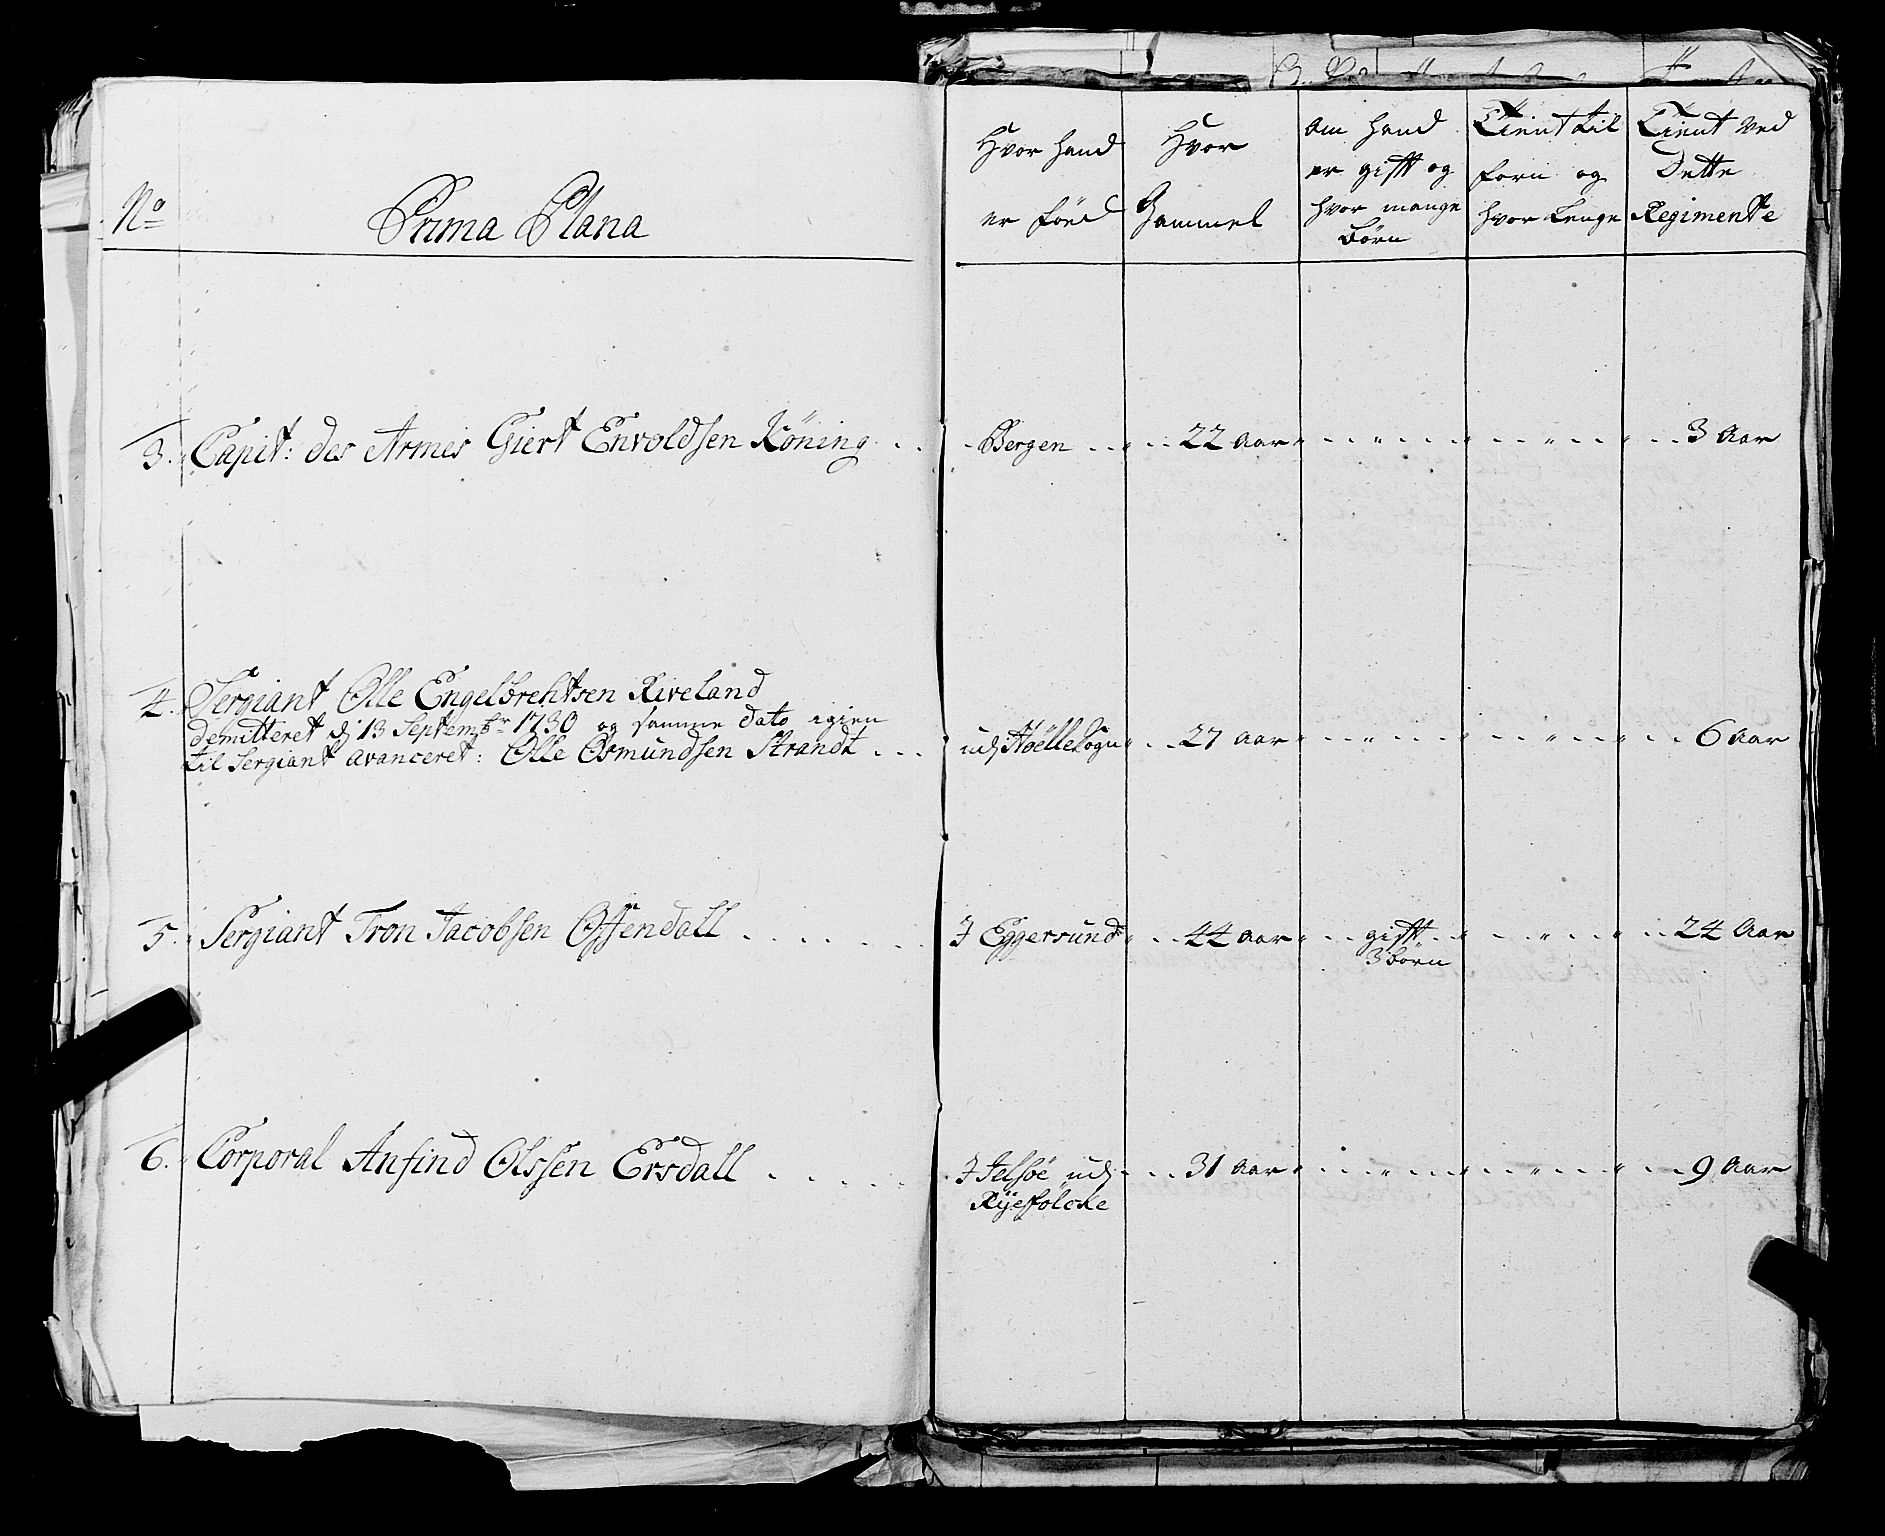 No
Prima Plana
Hvor hand
er föed
Hvor
Gammel
om hand
er gifft og
hvor mange
Börn
Tient til
forn og
hvor Lenge
Tient ved
Dette
Regimente
3. Capit: des Armes Giert Envoldsen Köning . . Bergen . . 22 aar 3 Aar
4. Sergiant Olle Engelbrehtsen Riveland
demitteret d: 13 Septembr 1730 og samme dato igien
til Sergiant avanceret: Olle Osmundsen Strandt . . . udj Höllesogn 27 aar 6 aar
5. Sergiant Tron Jacobsen Ossendall . . . . . . . J Eggersund 44 aar gifft 24 Aar
3 börn
6. Corporal Anfind Olssen Ersdall . . . . . . J Jelsöe udj 31 aar 9 Aar
Ryefölcke